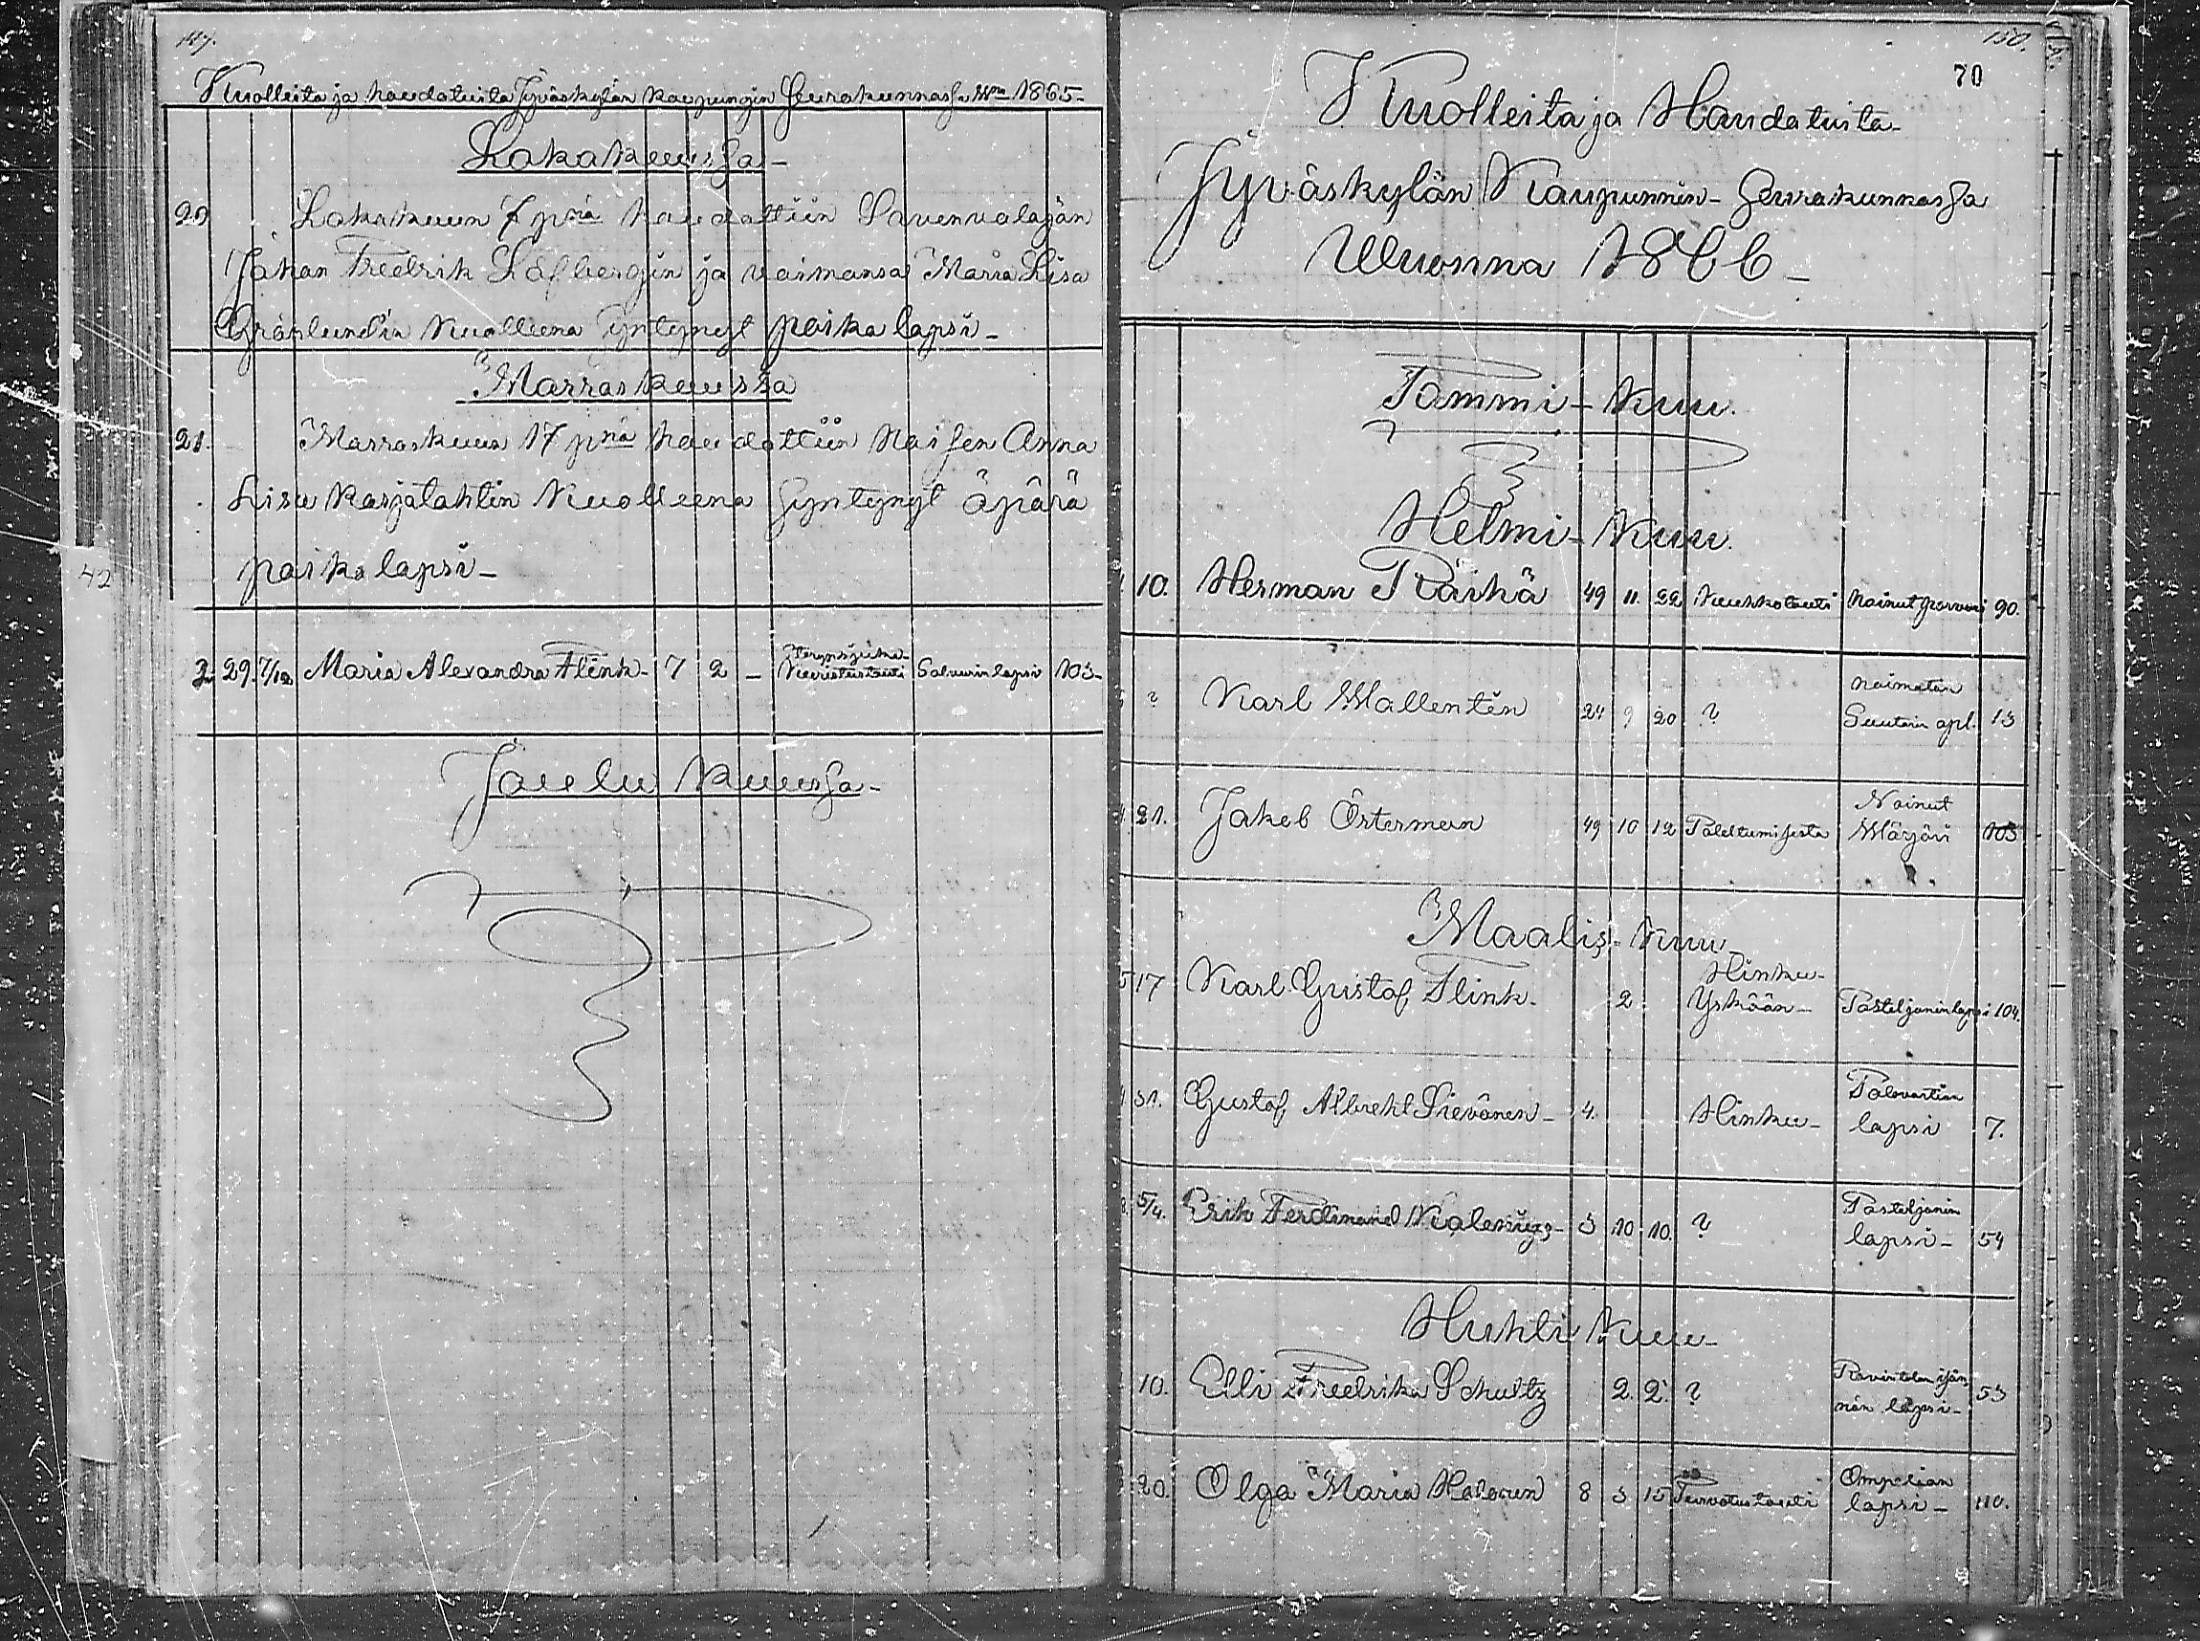 147.
Kuolleita ja haudatuita Jyväskylän kaupungin Seurakunnassa Wna 1865-
Lokakuussa-
20 Lokakuun 7 pnä haudattiin Savenvalajan
Johan Fredrik Löfbergin ja vaimonsa Maria Lisa
Grönlund'in kuolleena syntynyt poika lapsi-
Marraskuussa
21. Marraskuun 17 pnä haudattiin Naisen Anna
Lisa Karjalahtin kuolleena syntynyt äpärä
poika lapsi-
42
29. 7/12 Maria Alexandra Flink- 7 2 - Kuristustauti Salvurin lapsi 103-
Joulu kuussa-
150.
70
Kuolleita ja Haudatuita-
Jyväskylän Kaupunnin- Seurakunnassa
Wuonna 1866-
Tammi-kuu.
Helmi-kuu.
10. Herman Räihä 49 11. 22 Keuhkotauti Nainut porvari 90.
? Karl Wallentin 24 9 20 ? naimatoin Suutarin opl. 13
21. Jakob Österman 49 10 12 Paleltumisesta Nainut Wärjäri 103
Maalis-kuu-
17 Karl Gustaf Flink- 2 Hinku-Yskään- Posteljonin lapsi 104.
31. Gustaf Albreht Sievänen- 4. Hinku- Palovartian lapsi 7.
5/4. Erik Ferdinand Kalenius- 3 10 10. ? Posteljonin lapsi- 54
Huhti kuu-
10. Elli Fredrika Schultz 2. 2. ? Ravintolan isännän lapsi- 53
20. Olga Maria Halonen 8 3 15 Turvotustauti Ompelian lapsi- 110.